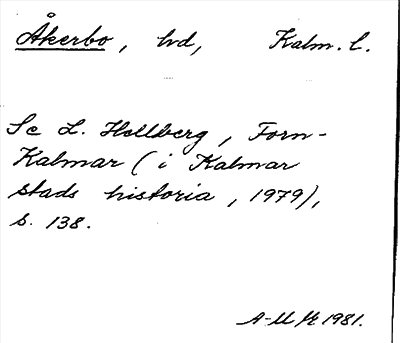 Åkerbo, hd, Kalm. l.
Se L. Hellberg, Forn-
Kalmar (i Kalmar
stads historia, 1979),
s. 138.
A-M 1981.